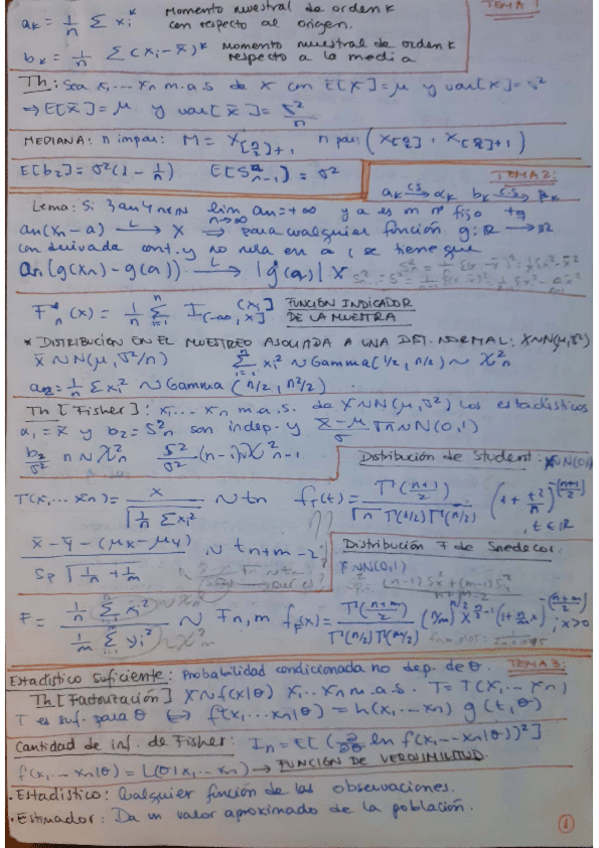 TEMA 1
a_k = 1/n Σ x_i^k Momento muestral de orden k
con respecto al origen.
b_k = 1/n Σ (x_i - x̄)^k Momento muestral de orden k
respecto a la media
Th: Sea x_1 ... x_n m.a.s de X con E[X] = μ y var[X] = σ²
⇒ E[x̄] = μ y var[x̄] = σ²/n
MEDIANA: n impar: M = X_[n/2]+1 n par: (X_[n/2], X_[n/2]+1)
E[b_2] = σ²(1 - 1/n) E[S²_n-1] = σ²
TEMA 2:
a_k →c.s α_k b_k →c.s β_k
Lema: Si ∃ an y n∈N lim n→∞ an = +∞ y a es un nº fijo tq
an(Xn - a) →L X ⇒ para cualquier función g: ℝ → ℝ
con derivada cont. y no nula en a, se tiene que
an(g(Xn) - g(a)) →L |g'(a)| X
F*_n(x) = 1/n Σ_{i=1}^n I_(-∞, x] (x_i) FUNCIÓN INDICADOR
DE LA MUESTRA
* DISTRIBUCIÓN EN EL MUESTREO ASOCIADA A UNA DIST. NORMAL: X∼N(μ, σ²)
x̄ ∼ N(μ, σ²/n) Σ x_i² ∼ Gamma(1/2, n/2) ∼ χ²_n
a_2 = 1/n Σ x_i² ∼ Gamma(n/2, n²/2)
Th [Fisher]: x_1 ... x_n m.a.s. de X∼N(μ, σ²) Los estadísticos
a_1 = x̄ y b_2 = S²_n son indep. y (x̄ - μ)/σ √n ∼ N(0,1)
b_2/σ² n ∼ χ²_n S²/σ² (n-1) ∼ χ²_n-1
Distribución de Student: X∼N(0,1)
T(x_1 ... x_n) = x / √(1/n Σ x_i²) ∼ t_n f_T(t) = Γ((n+1)/2) / (√n Γ(1/2) Γ(n/2)) (1 + t²/n)^-((n+1)/2), t ∈ ℝ
(x̄ - ȳ - (μ_x - μ_y)) / (S_p √(1/n + 1/m)) ∼ t_n+m-2
Distribución F de Snedecor:
X∼N(0,1)
S²_p = ((n-1)S²_x + (m-1)S²_y) / (n+m-2)
F = (1/n Σ x_i²) / (1/m Σ y_i²) ∼ F_n,m f_F(x) = Γ((n+m)/2) / (Γ(n/2) Γ(m/2)) (n/m)^n/2 x^(n/2 - 1) (1 + n/m x)^-((n+m)/2); x>0
TEMA 3:
Estadístico Suficiente: Probabilidad condicionada no dep. de θ.
Th [Factorización] X∼f(x|θ) x_1 ... x_n m.a.s. T = T(x_1 ... x_n)
T es suf. para θ ⇔ f(x_1 ... x_n|θ) = h(x_1 ... x_n) g(t, θ)
Cantidad de inf. de Fisher: I_n = E[(∂/∂θ ln f(x_1 ... x_n|θ))²]
f(x_1 ... x_n|θ) = L(θ|x_1 ... x_n) → FUNCIÓN DE VEROSIMILITUD.
· Estadístico: Cualquier función de las observaciones.
· Estimador: Da un valor aproximado de la población.
1